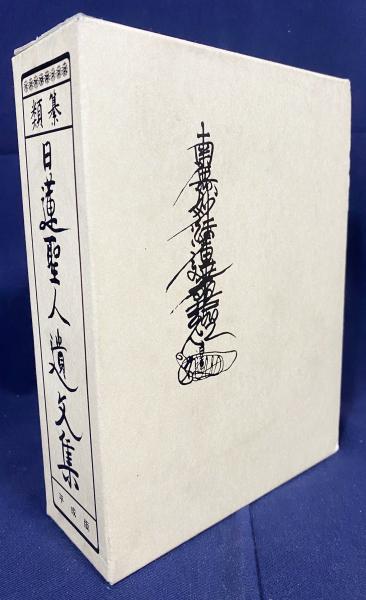 類纂
日蓮聖人遺文集
平成版
南無妙法蓮華経